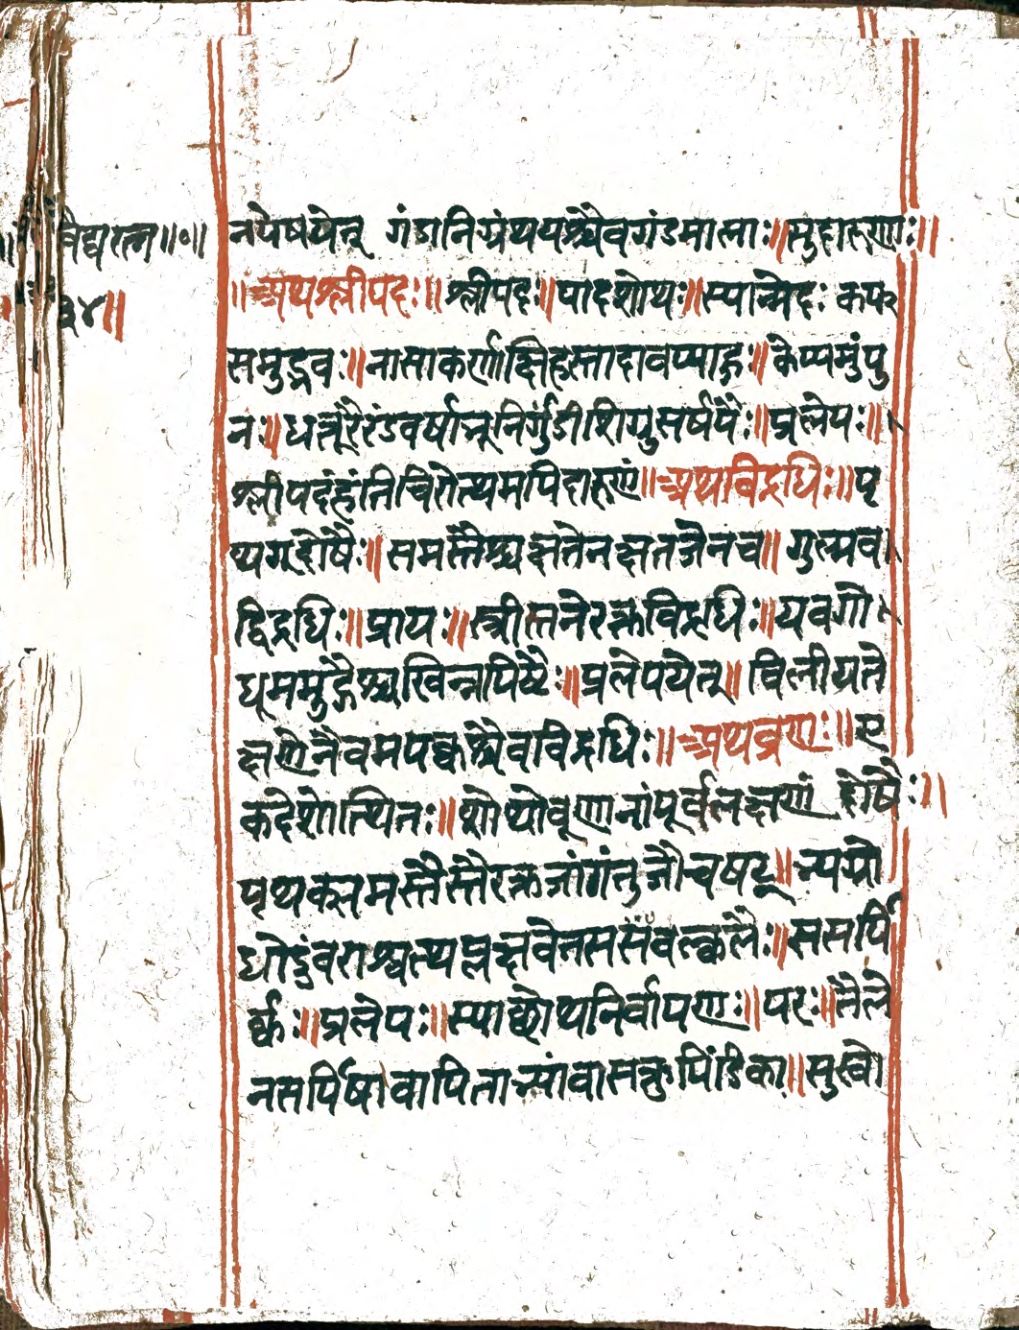 ॥ वैद्यरत्न ॥०॥
३४॥
नपेषयेत् गंडानिग्रंथयश्चैवगंडमालाः॥सुदारुणाः॥
॥अथश्लीपदः॥श्लीपदः॥पादशोथः॥स्यान्मेदः कफ
समुद्भवः॥नासाकर्णाक्षिहस्तादावप्याहुः॥केप्यमुंपु
नः॥धत्तूरैरंडवर्षाभूनिर्गुंडीशिग्रुसर्षपैः॥प्रलेपः॥
श्लीपदंहंतिचिरोत्थमपिदारुणं॥अथविद्रधिः॥पृ
थग्दोषैः॥समस्तैश्चक्षतेनक्षतजेनच॥गुल्मव
द्विद्रधिः॥प्रायः॥स्त्रीस्तनेरक्तविद्रधिः॥यवगो
धूममुद्गैश्चखिन्नपिष्टैः॥प्रलेपयेत्॥विलीयते
क्षणेनैवमपक्वश्चैवविद्रधिः॥अथव्रणः॥ए
कदेशोत्थितः॥शोथोव्रणानांपूर्वलक्षणं दोषैः॥
पृथक्समस्तैस्तैरक्तजागंतुजौचषट्॥न्यग्रो
धोदुंवराश्वत्थप्लक्षवेतससंवल्कलैः॥ससर्पि
र्ष्कः॥प्रलेपः॥स्याच्छोथनिर्वापणः॥परः॥तैले
नसर्पिषावापिताभ्यांवासक्तुपिंडिका॥सुखो